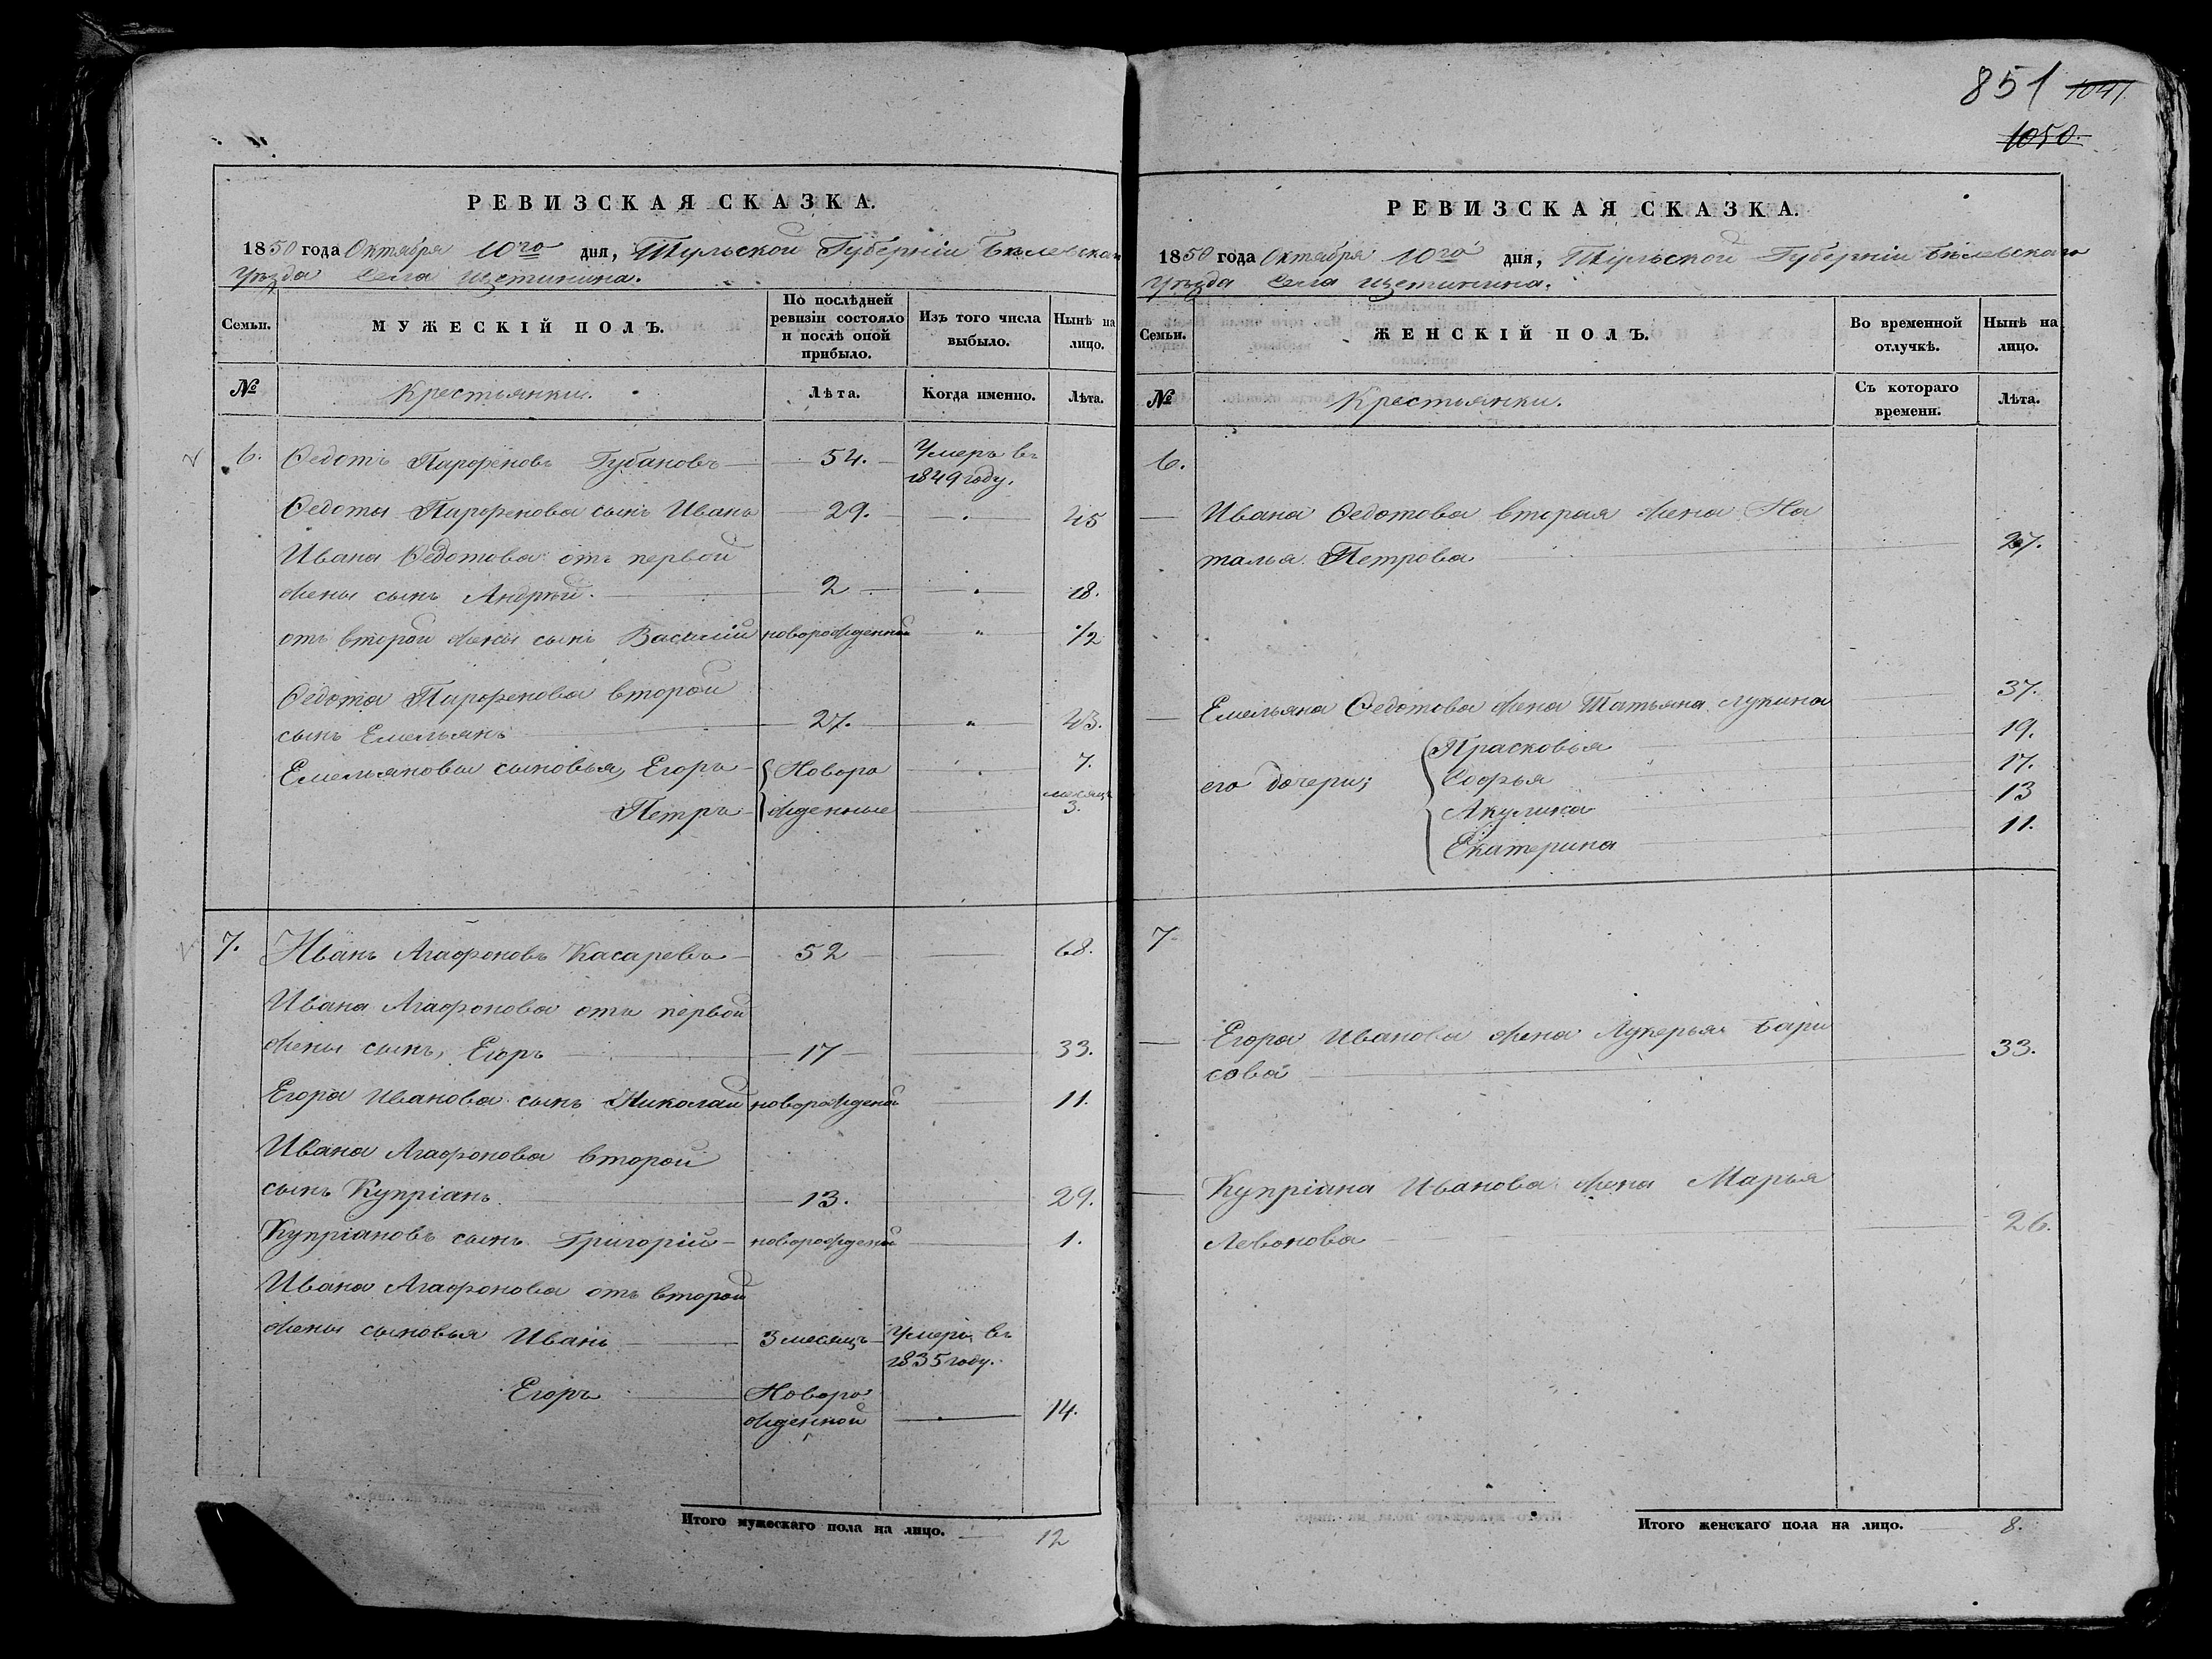 851 1041
1050.
РЕВИЗСКАЯ СКАЗКА.
1850 года Октября 10го дня, Тульской Губерніи Бѣлевскаго
Уѣзда Села Щетинина.
Семьи.
МУЖЕСКІЙ ПОЛЪ.
По послѣдней ревизіи состояло и послѣ оной прибыло.
Изъ того числа выбыло.
Нынѣ на лицо.
№
Крестьянки.
Лѣта.
Когда именно.
Лѣта.
6. Ѳедотъ Парфеновъ Губановъ 54. Умеръ въ
1849 году.
Ѳедоты Парфенова сынъ Иванъ 29. 45
Ивана Ѳедотова отъ первой
жены сынъ Андрей. 2 18.
отъ второй жены сынъ Василій новорожденной " 1/2
Ѳедота Парфенова второй
сынъ Емельянъ 27. " 43.
Емельяновы сыновья, Егоръ Новоро 7.
месяцъ
Петръ жденные 3.
7. Иванъ Агафоновъ Касаревъ 52 68.
Ивана Агафонова отъ первой
жены сынъ, Егоръ 17 33.
Егора Иванова сынъ Николай новорожденой 11.
Ивана Агафонова второй
сынъ Купріанъ 13. 29.
Купріановъ сынъ Григорій новорожденой 1.
Ивана Агафонова отъ второй
жены сыновья Иванъ 3 месяцъ Умеръ въ
1835 году.
Егоръ Новоро
жденной 14.
Итого мужескаго пола на лицо. 12
РЕВИЗСКАЯ СКАЗКА.
1850 года Октября 10го дня, Тульской Губерніи Бѣлевскаго
Уѣзда Села Щетинина.
Семьи.
ЖЕНСКІЙ ПОЛЪ.
Во временной отлучкѣ.
Нынѣ на лицо.
№
Крестьянки.
Съ котораго времени.
Лѣта.
6.
Ивана Ѳедотова вторая жена На
талья Петрова 27.
Емельяна Ѳедотова жена Татьяна Лукина 37.
Прасковья 19.
его дочери; Софья 17.
Акулина 13
Екатерина 11.
7
Егора Иванова жена Лукерья Бари
сова 33.
Купріана Иванова жена Марья
Левонова 26.
Итого женскаго пола на лицо. 8.